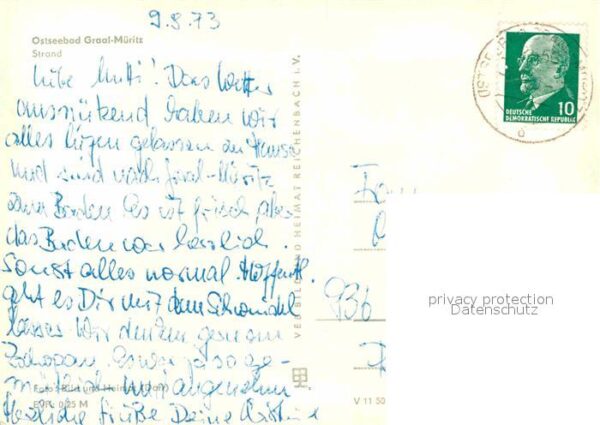 9.8.73
Ostseebad Graal-Müritz
Strand
Liebe Mutti! Das Wetter
ausnützend haben wir
alles liegen gelassen zu Hause
und sind nach Graal-Müritz
zum Baden. Es ist frisch, aber
das Baden war herrlich.
Sonst alles normal. Hoffentl.
geht es Dir mit dem Schwindel
besser. Wir denken gern an
Zschopau. Es war ja so ge-
mütlich und angenehm
Foto: Bild und Heimat
EVP: 0,25 M
Herzliche Grüße Deine
VEB BILD UND HEIMAT REICHENBACH i. V.
V 11 50
936
10
DEUTSCHE
DEMOKRATISCHE REPUBLIK
privacy protection
Datenschutz